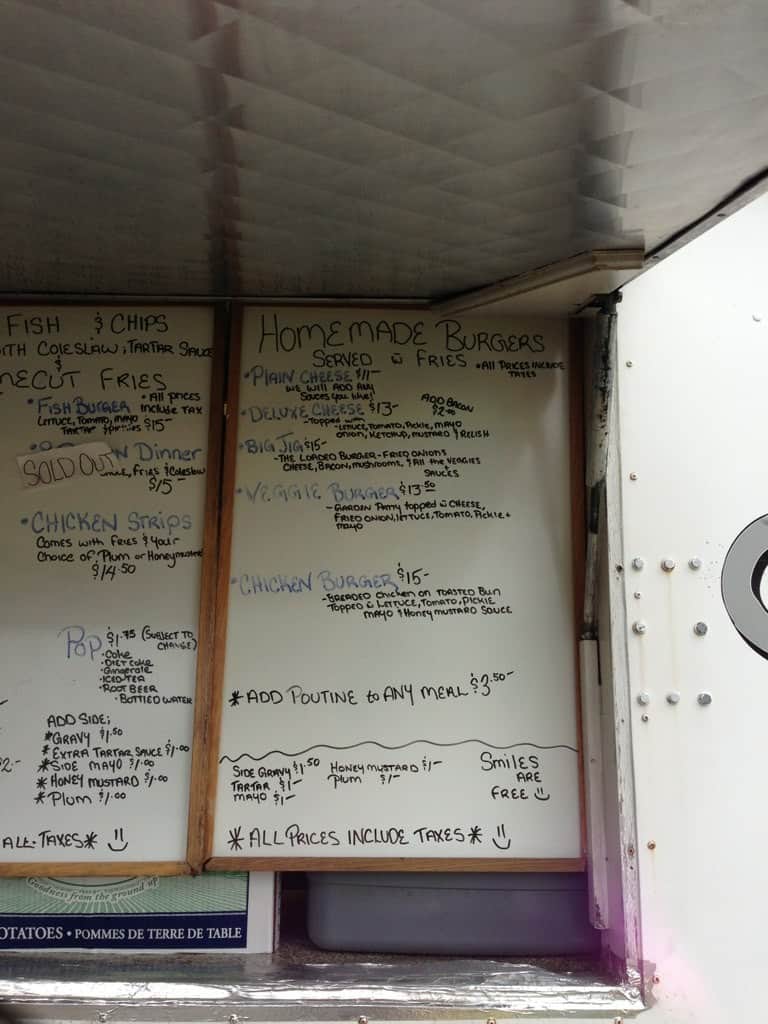 FISH & CHIPS
ITH COLESLAW, TARTAR SAUCE
&
NECUT FRIES
• FISH BURGER
• All prices include TAX
LETTUCE, TOMATO, MAYO
TARTAR $15-
N Dinner
SOLD OUT
FRIES & Coleslaw
$15-
• CHICKEN STRIPS
Comes with FRIES & your
Choice of Plum or Honeymustard
$14.50
POP $1.75 (SUBJECT TO CHANGE)
• Coke
• DIET Coke
• Gingerale
• ICED TEA
• ROOT BEER
• BOTTLED WATER
ADD SIDE;
* GRAVY $1.50
* EXTRA TARTAR SAUCE $1.00
2-
* SIDE MAYO $1.00
* HONEY MUSTARD $1.00
* Plum $1.00
ALL TAXES*
HOMEMADE BURGERS
SERVED w FRIES
• All PRICES INCLUDE TAXES
• PLAIN CHEESE $11-
WE WILL ADD ANY
SAUCES you like!
ADD BACON
$2.00
• DELUXE CHEESE $13-
-TOPPED with
-LETTUCE, TOMATO, Pickle, MAYO
ONION, KETCHUP, MUSTARD & RELISH
• BIG JIG $15-
-THE LOADED BURGER-FRIED ONIONS
CHEESE, BACON, mushrooms, & All the VEGGIES
SAUCES
• VEGGIE BURGER $13.50
- GARDEN Patty topped w CHEESE,
FRIED ONION, LETTUCE, TOMATO, Pickle +
mayo
• CHICKEN BURGER $15-
-BREADED chicken on TOASTED BUN
TOPPED w LETTUCE, TOMATO, PICKLE
MAYO & HONEYMUSTARD SAUCE
* ADD POUTINE to ANY MEAL $3.50-
SIDE GRAVY $1.50
TARTAR $1-
MAYO $1-
HONEYMUSTARD $1-
Plum $1-
SMILES
ARE
FREE
* ALL PRICES INCLUDE TAXES *
Goodness from the ground up
OTATOES • POMMES DE TERRE DE TABLE